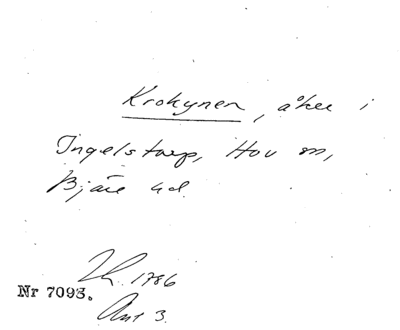 Krokynen, åker i
Ingelstorp, Hov sn,
Bjäre hd.
Lh. 1786
Nr 7093.
Ant 3.